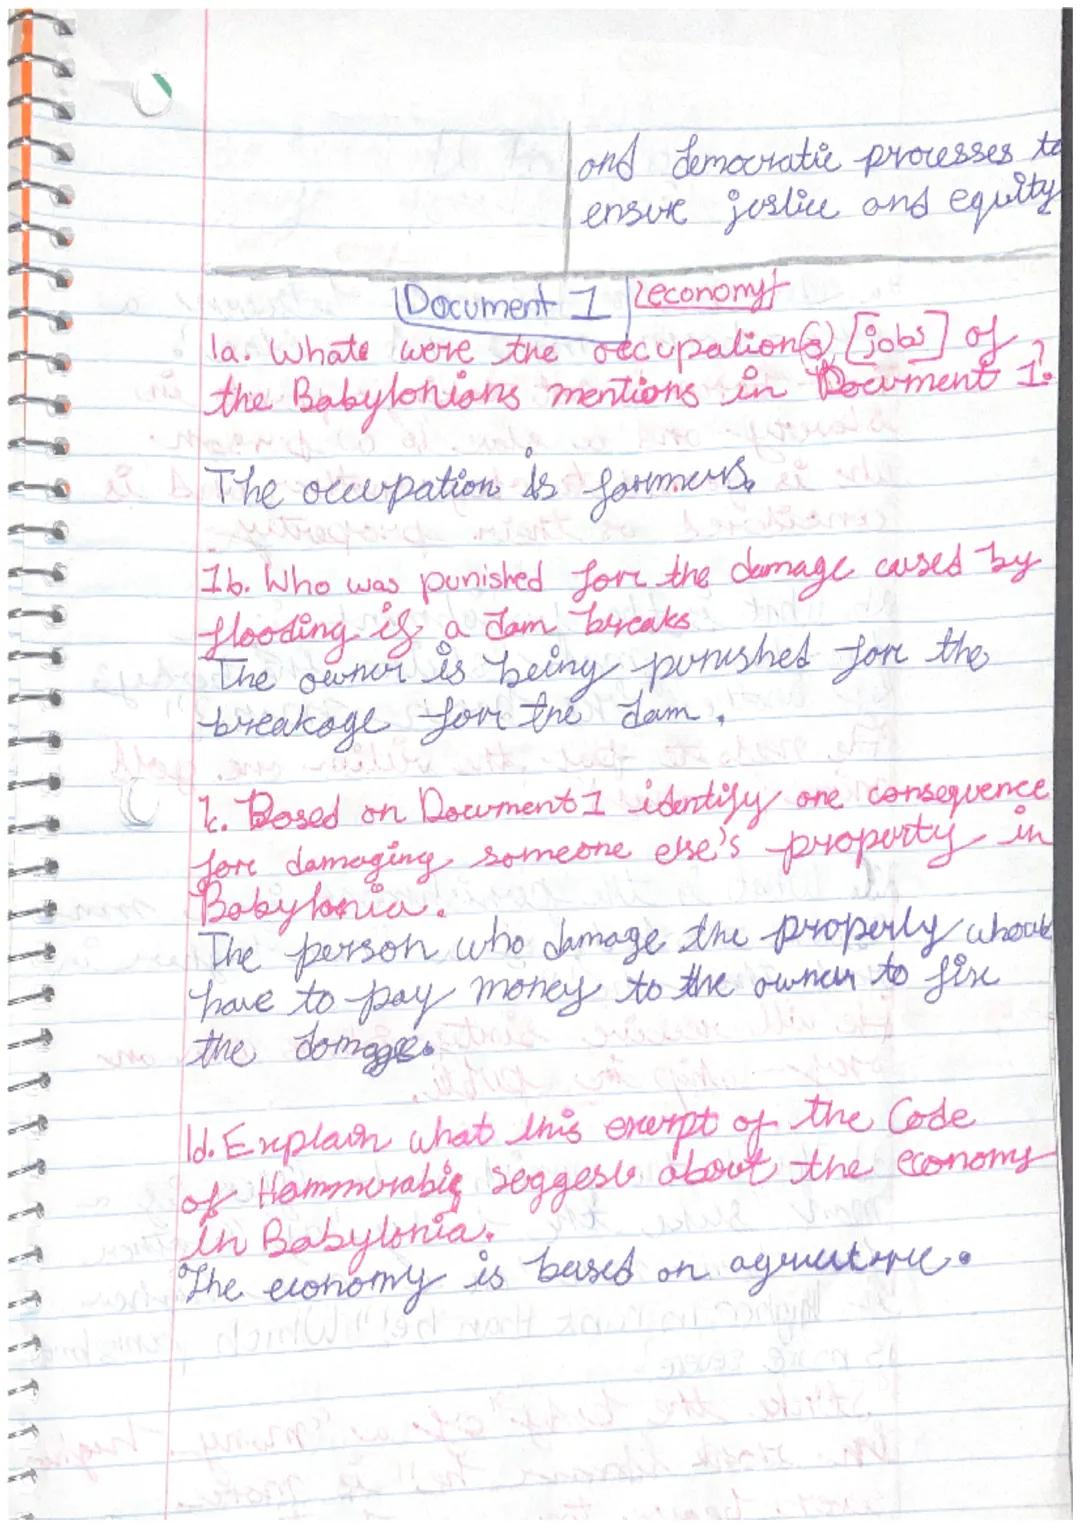 and democratic processes to
ensure justice and equity
Document 1 economy
1a. Whats were the occupation(s) [jobs] of
the Babylonians mentions in Document 1?
The occupation is farmers.
1b. Who was punished for the damage caused by
flooding if a dam breaks
The owner is being punished for the
breakage for the dam.
1c. Based on Document 1 identify one consequence
for damaging someone else's property in
Babylonia.
The person who damage the property
have to pay money to the owner to fix
the damage.
1d. Explain what this exerpt of the Code
of Hammurabi seggest about the economy
in Babylonia.
The economy is based on agriculture.